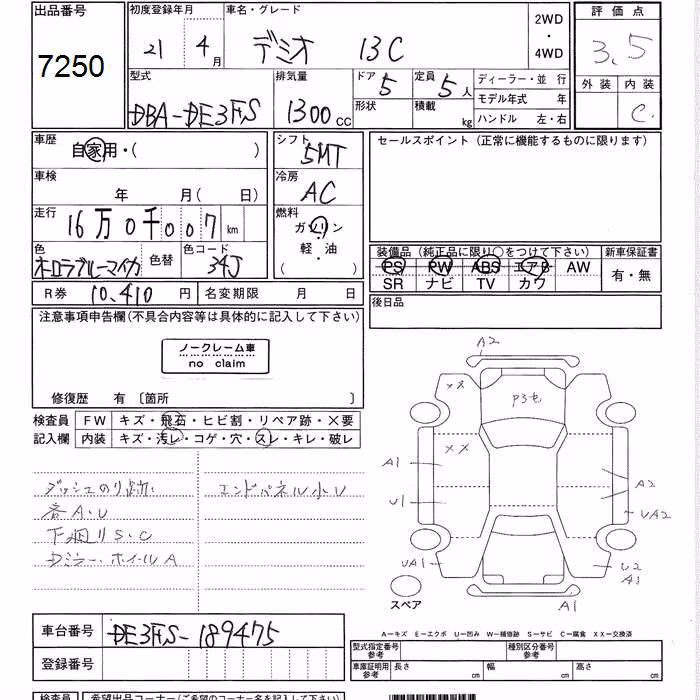 出品番号 初度登録年月 車名・グレード 2WD ・ 4WD 評価点
7250 21 4月 デミオ 13C 3.5
型式 排気量 ドア 定員 ディーラー・並行 外装 内装
DBA-DE3FS 1300cc 5 5人 モデル年式 年 C
形状 積載 kg ハンドル 左・右
車歴 自家用・( ) シフト 5MT セールスポイント (正常に機能するものに限ります)
車検 年 月( 日) 冷房 AC
走行 16万0千007km 燃料 ガソリン 軽・油 ( )
色 オーロラブルーマイカ 色替 色コード 34J
装備品 (純正品に限り○をつけて下さい) 新車保証書
PS PW ABS エアB AW 有・無
SR ナビ TV カワ
R券 10,410円 名変期限 月 日 後日品
注意事項申告欄(不具合内容等は具体的に記入して下さい)
ノークレーム車
no claim
修復歴 有 〔箇所 〕
検査員 FW キズ・飛石・ヒビ割・リペア跡・×要
記入欄 内装 キズ・汚レ・コゲ・穴・スレ・キレ・破レ
ダッシュのり跡 エンドパネル小U
各A・U
下廻りS・C
Dミラー・ホイールA
A2
××
××
A1
U1
A2
UA2
UA1
U2
A1
スペア
A1
A―キズ E―エクボ U―凹み W―補修跡 S―サビ C―腐食 XX―交換済
車台番号 DE3FS-189475
型式指定番号 参考 種別区分番号 参考
登録番号 車庫証明用 参考 長さ cm 幅 cm 高さ cm
検査員 希望出品コーナー(ご希望のコーナー名を記入下さい)